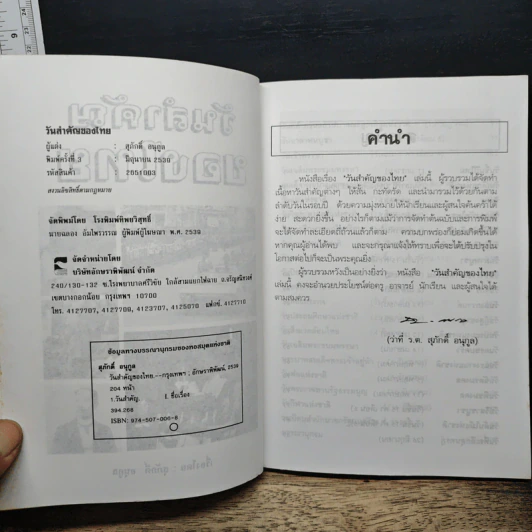 วันสำคัญของไทย
ผู้แต่ง : สุภักดิ์ อนุกูล
พิมพ์ครั้งที่ 3 : มิถุนายน 2530
รหัสสินค้า : 2051003
สงวนลิขสิทธิ์ตามกฎหมาย
จัดพิมพ์โดย โรงพิมพ์ทิพยวิสุทธิ์
นายฉลอง อัมไพวรรณ ผู้พิมพ์ผู้โฆษณา พ.ศ. 2530
จัดจำหน่ายโดย
บริษัทอักษราพิพัฒน์ จำกัด
240/130-132 ซ.โรงพยาบาลศิริชัย ใกล้สามแยกไฟฉาย ถ.จรัญสนิทวงศ์
เขตบางกอกน้อย กรุงเทพฯ 10700
โทร. 4127707, 4127797, 4123707, 4125870 แฟกซ์. 4127710
ข้อมูลทางบรรณานุกรมของหอสมุดแห่งชาติ
สุภักดิ์ อนุกูล
วันสำคัญของไทย.--กรุงเทพฯ : อักษราพิพัฒน์, 2530
204 หน้า
1.วันสำคัญ. I. ชื่อเรื่อง
394.268
ISBN: 974-507-006-8
คำนำ
หนังสือเรื่อง "วันสำคัญของไทย" เล่มนี้ ผู้รวบรวมได้จัดทำ
เนื้อหาวันสำคัญต่างๆ ให้สั้น กะทัดรัด และนำมารวมไว้ด้วยกันตาม
ลำดับวันในรอบปี ด้วยความมุ่งหมายให้นักเรียนและผู้สนใจค้นคว้าได้
ง่าย สะดวกยิ่งขึ้น อย่างไรก็ตามแม้ว่าการจัดทำต้นฉบับและการพิมพ์
จะได้จัดทำละเอียดถี่ถ้วนแล้วก็ตาม ความบกพร่องก็ย่อมเกิดขึ้นได้
หากคุณผู้อ่านได้พบ และจะกรุณาแจ้งให้ทราบเพื่อจะได้ปรับปรุงใน
โอกาสต่อไปก็จะเป็นพระคุณยิ่ง
ผู้รวบรวมหวังเป็นอย่างยิ่งว่า หนังสือ "วันสำคัญของไทย"
เล่มนี้ คงจะอำนวยประโยชน์ต่อครู อาจารย์ นักเรียน และผู้สนใจได้
ตามสมควร
(ว่าที่ ร.ต. สุภักดิ์ อนุกูล)